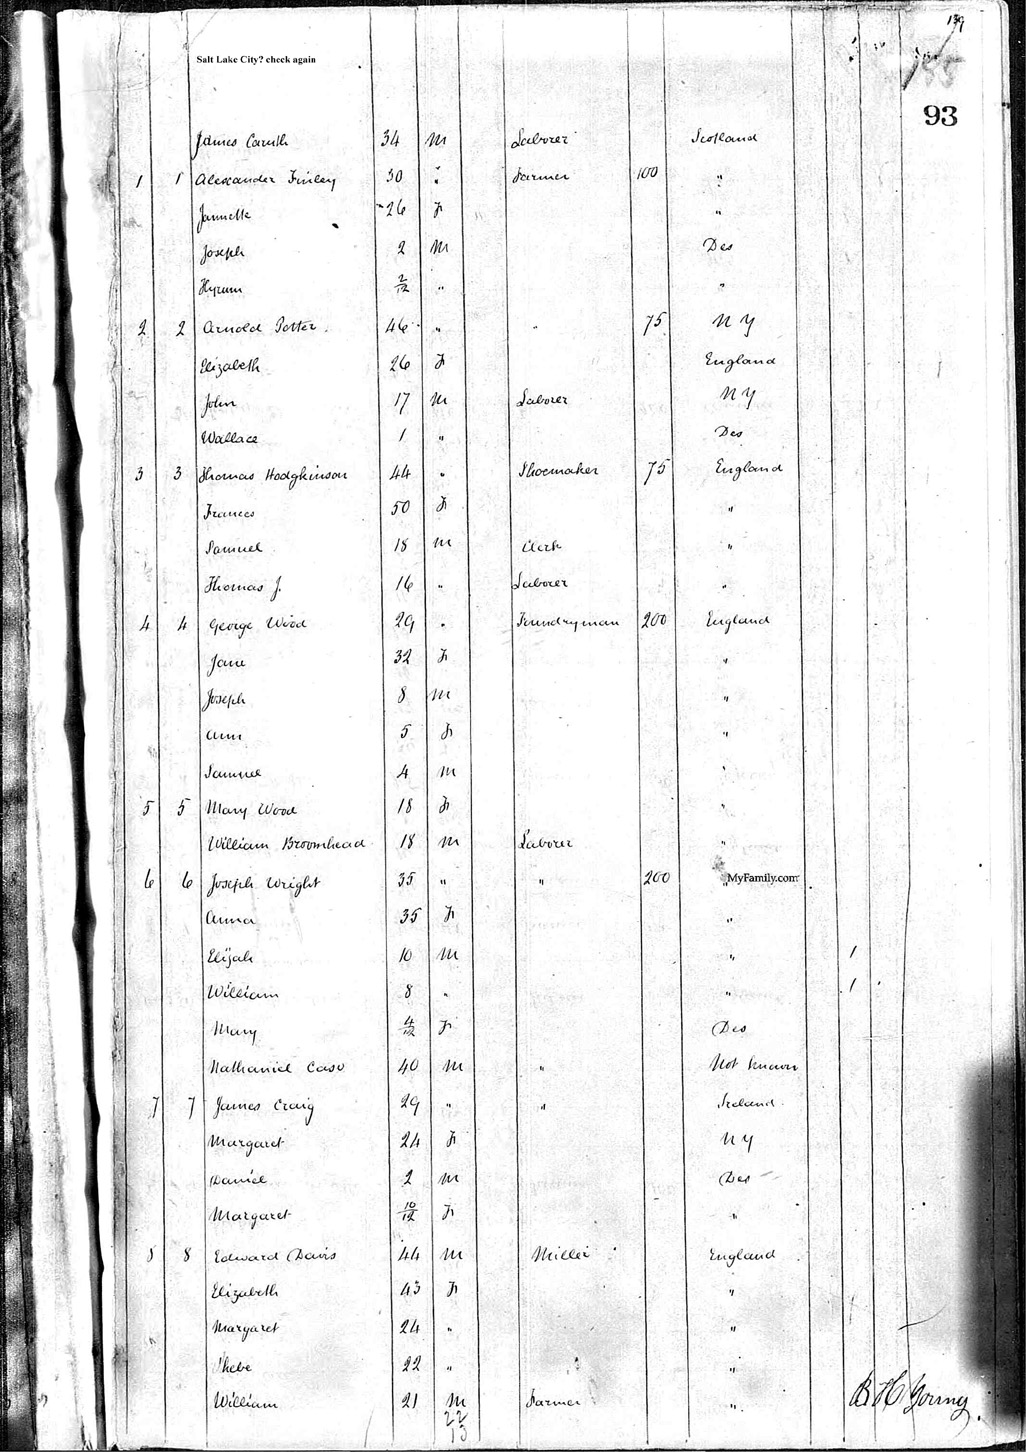 139
Salt Lake City? check again
93
James Caruth 34 M Laborer Scotland
1 1 Alexander Finley 30 " Farmer 100 "
Jannette 26 F "
Joseph 2 M Des
Hyrum 2/12 " "
2 2 Arnold Potter 46 " " 75 N Y
Elizabeth 26 F England
John 17 M Laborer N Y
Wallace 1 " Des
3 3 Thomas Hodgkinson 44 " Shoemaker 75 England
Frances 50 F "
Samuel 18 M Clerk "
Thomas J. 16 " Laborer "
4 4 George Wood 29 " Foundryman 200 England
Jane 32 F "
Joseph 8 M "
Ann 5 F "
Samuel 4 M "
5 5 Mary Wood 18 F "
William Broomhead 18 M Laborer "
6 6 Joseph Wright 35 " " 200 " MyFamily.com
Anna 35 F "
Elijah 10 M " 1
William 8 " " 1
Mary 4/12 F Des
Nathaniel Case 40 M " Not known
7 7 James Craig 29 " " Ireland
Margaret 24 F N Y
Daniel 2 M Des
Margaret 10/12 F "
8 8 Edward Davis 44 M Miller England
Elizabeth 43 F "
Margaret 24 " "
Phebe 22 " "
William 21 M Farmer "
B H Young
22
13